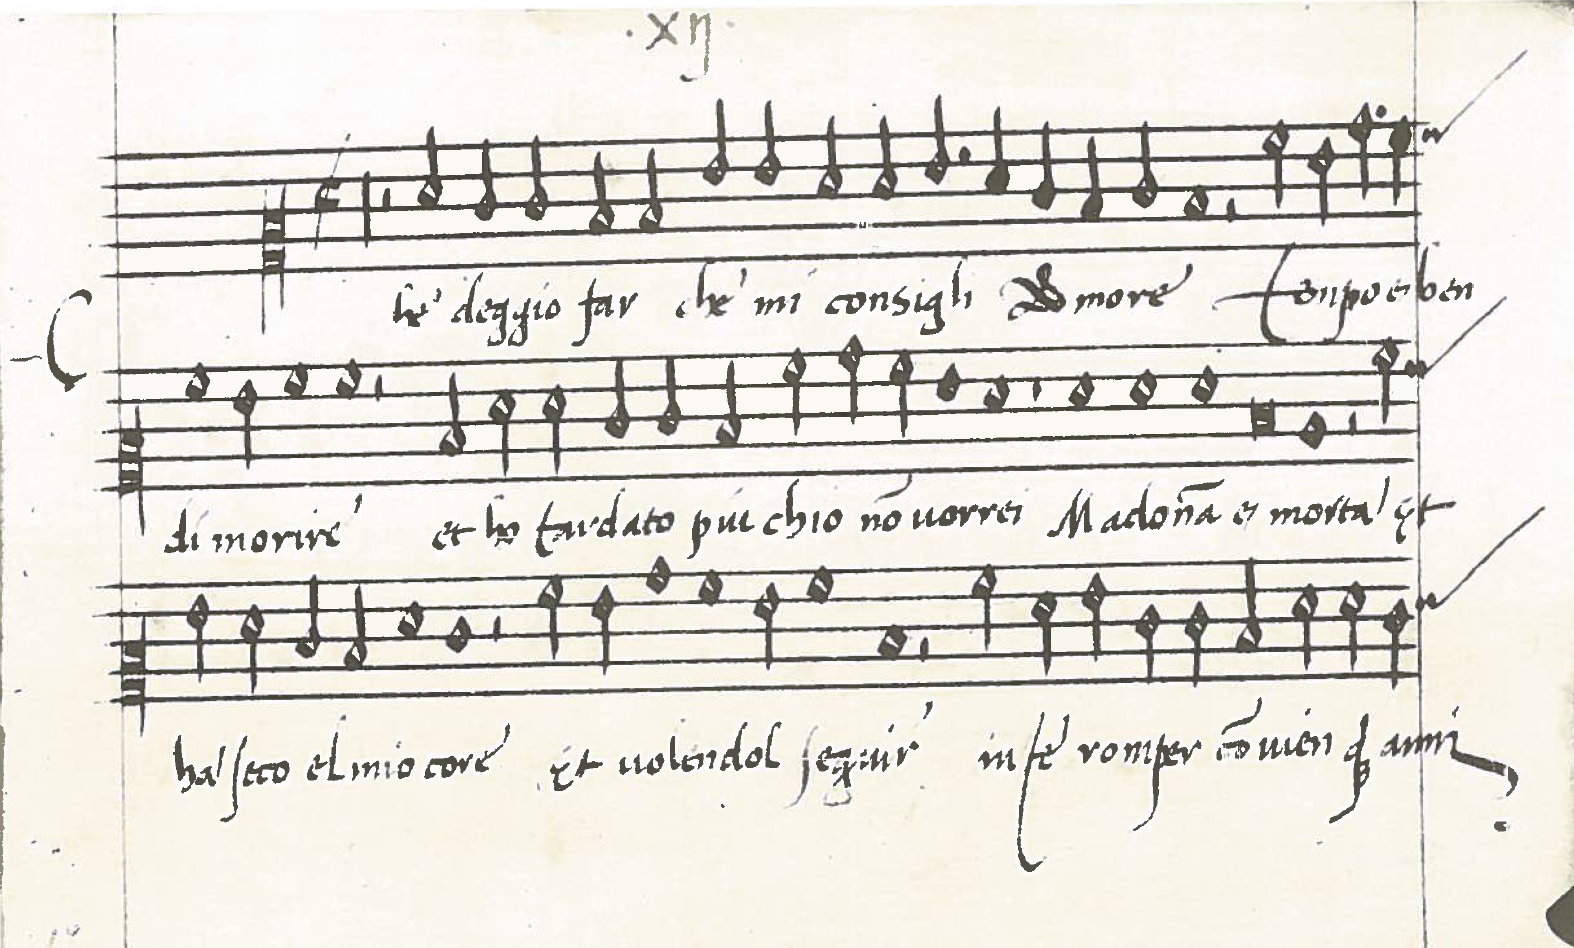 .xij.
C he deggio far che mi consigli Amore Tenpo ei ben
di morire et ho tardato piu chio nō uorrei Madoña ei morta et
ha seco el mio core Et uolendol seguir in ſe romper cō uien q̄ anni